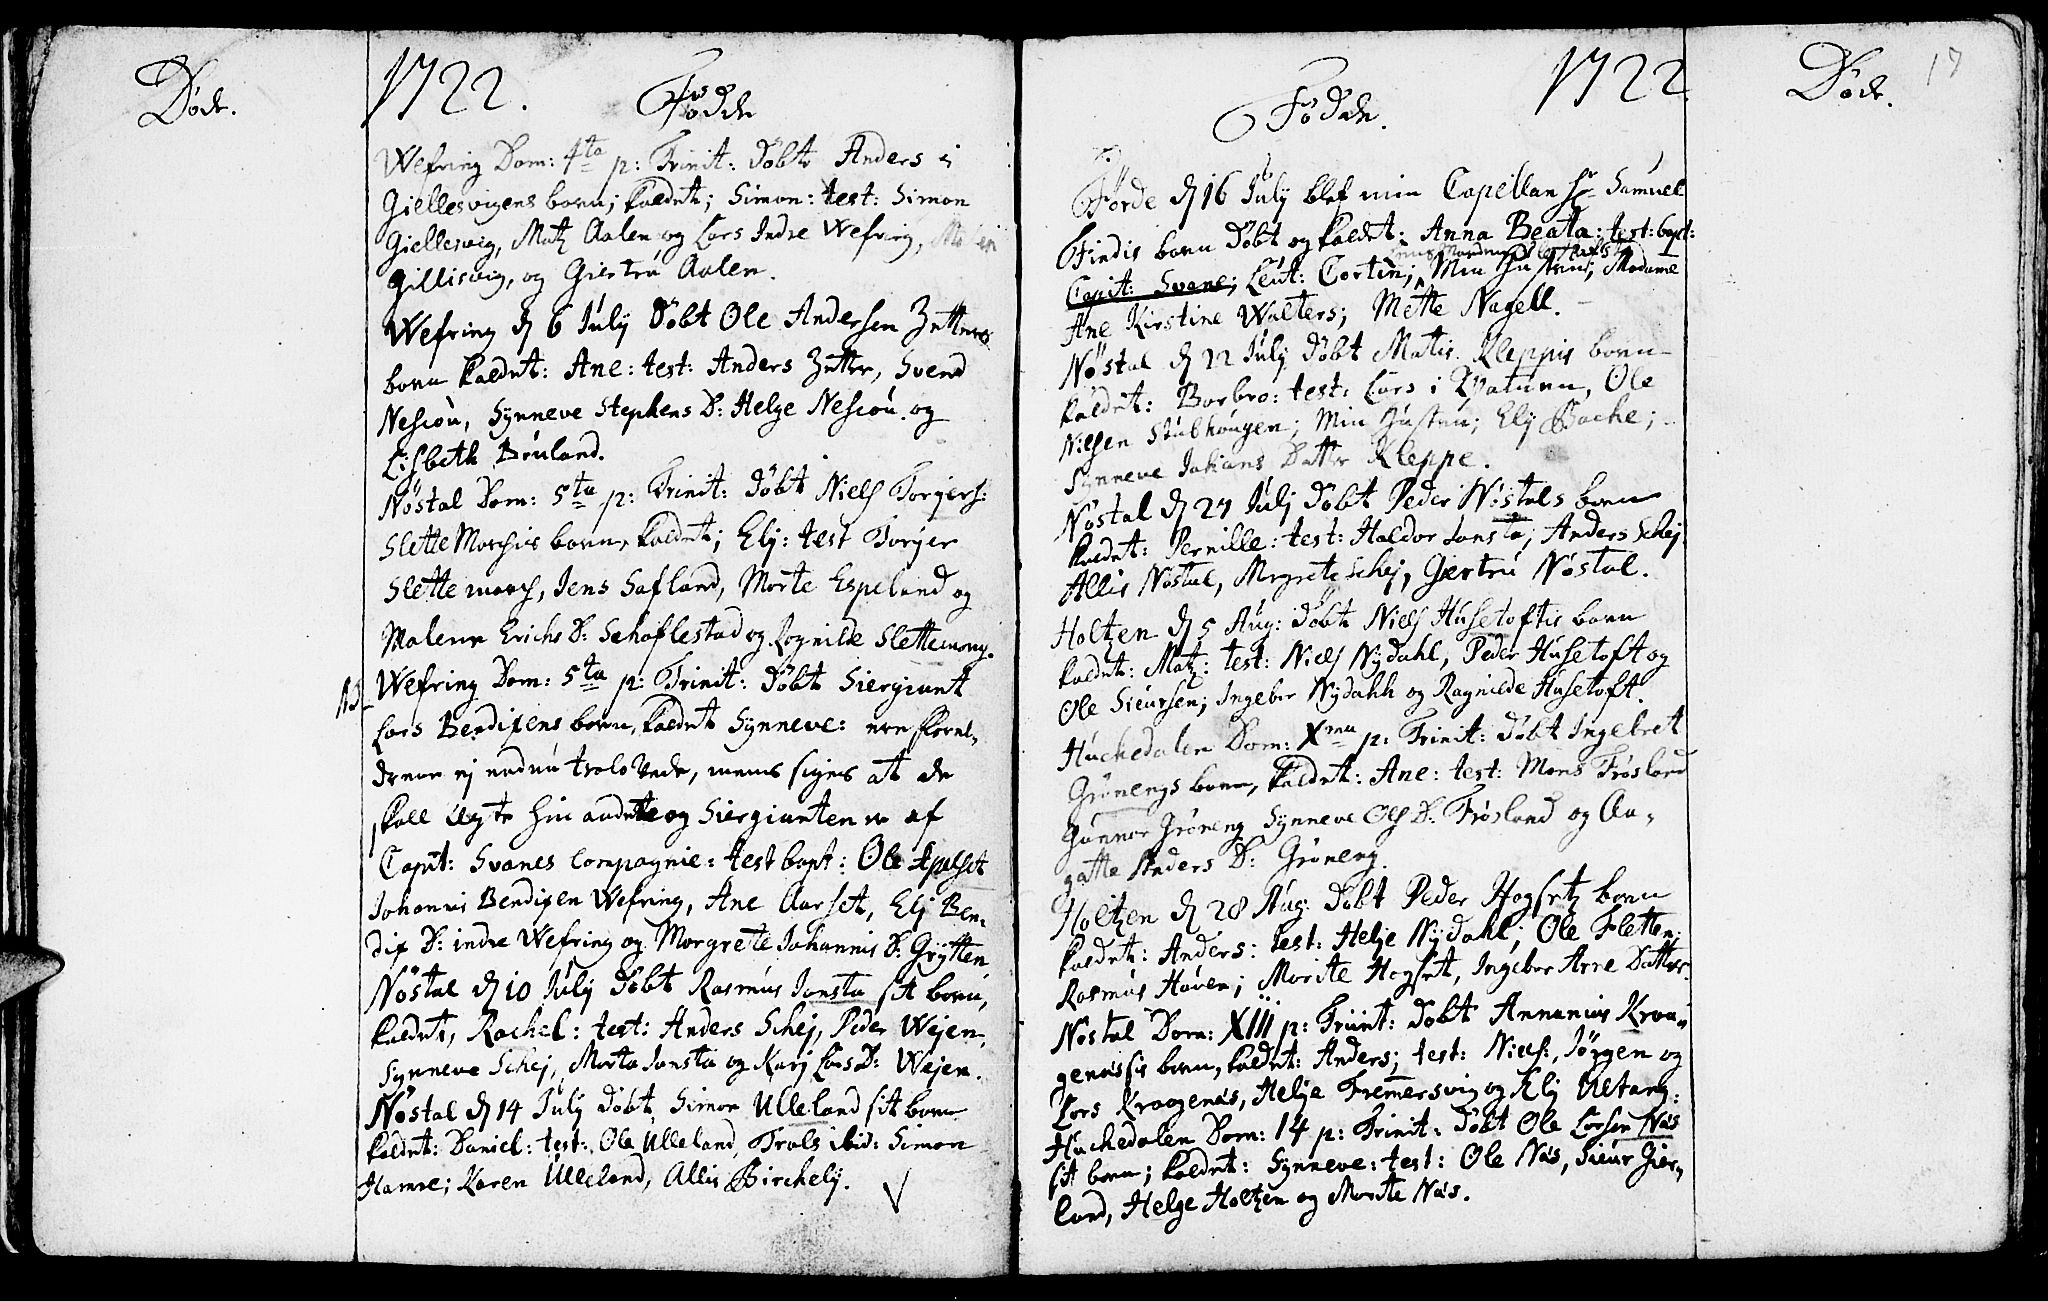 Døde.
1722.
Fødde
Wefring Dom: 4ta p: Trinit: döbt Anders i
Giellesvigens born; kaldet; Simon: test: Simon
Giellesvig, Matz Aalen og Lars Indre Wefring,
Gillisvig, og Giertru Aalen.
Wefring d 6 July döbt Ole Andersen Zetters
born kaldet: Ane: test: Anders Zetter, Svend
Nescou, Synneve Stephens D: Helge Nescou og
Lisbeth Bruland.
Nöstal Dom: 5ta p: Trinit: döbt Niels Torgers:
Slette Marchis born, kaldet; Elj: test Torjer
Slette march, Jens Safland, Morte Espeland og
Malene Erichs D: Schaflestad og Rognilde Slettemarg.
NB Wefring Dom: 5ta p: Trinit: döbt Siergiant
Lars Bendixens born, kaldet Synneve: ere forel,
drene ej endnu trolovede, mens siges at de
skall ægte hin anden og Siergianten er af
Capit: Svanes Compagnie: test bapt: Ole Apelset
Johannis Bendixen Wefring, Ane Aarset, Elj Ben,
dix D: indre Wefring og Morgrete Johannis D: Grytten
Nöstal d 10 July döbt Rasmus Jansta sit born,
kaldet, Rachel: test: Anders Schej, Peder Wejen,
Synneve Schej, Marta Jansta og Karj Lars D: Wejen.
Nöstal d 14 July döbt Simon Ulleland sit born
kaldet: Daniel: test: Ole Ulleland, Trols ibid: Simon
Hamre; Karen Ulleland, Allis Birchelj.
1722
Fødde.
Døde.
17
Förde d 16 July blef min Capellan Hr Samuel
Findis born döbt og kaldet: Anna Beata: test: bapt:
Capit: Svane; Leut: Cortin; Min Hustru; Madame
Ane Kirstine Wulters; Mette Nagell.
Nöstal d 22 July döbt Matis Kleppis born
kaldet: Barbro: test: Lars i Watnen, Ole
Nilsen Stubhougen; Min Hustru; Elj Bache;
Synneve Johans Datter Kleppe.
Nöstal d 27 Julj döbt Peder Nöstals born
kaldet: Pernille: test: Haldor Jansta; Anders Schej
Allis Nöstal, Mrgrete Schej, Giertru Nöstal.
Holtzen d 5 Aug: döbt Niels Husetoftis born
kaldet: Matz: test: Niels Nydahl, Peder Husetoft og
Ole Sieursen; Ingeber Nydahl og Ragnilde Husetoft.
Huckedalen Dom: Xma p: Trinit: döbt Ingebret
Grönengs born, kaldet: Ane: test: Mons Frösland
Gunnor Gröneng Synneve Ols D: Frösland og Aa,
gatte Anders D: Gröneng.
Holtzen d 28 Aug: döbt Peder Hogsetz born
kaldet: Anders: test: Helje Nydahl; Ole Fletten;
Rasmus Haven; Marite Hogset, Ingebor Arne Datter.
Nöstal Dom: XIII p: Trinit: döbt Annanias Kraa,
genæssis born, kaldet: Anders; test: Niels:, Jörgen og
Lars Kraagenæs, Helje Fremersvig og Elj Ultang.
Huckedalen Dom: 14 p: Trinit: döbt Ole Larsen Næs
sit born; kaldet: Synneve: test: Ole Næs, Sieur Gier,
land, Helge Holtzen og Marite Næs.